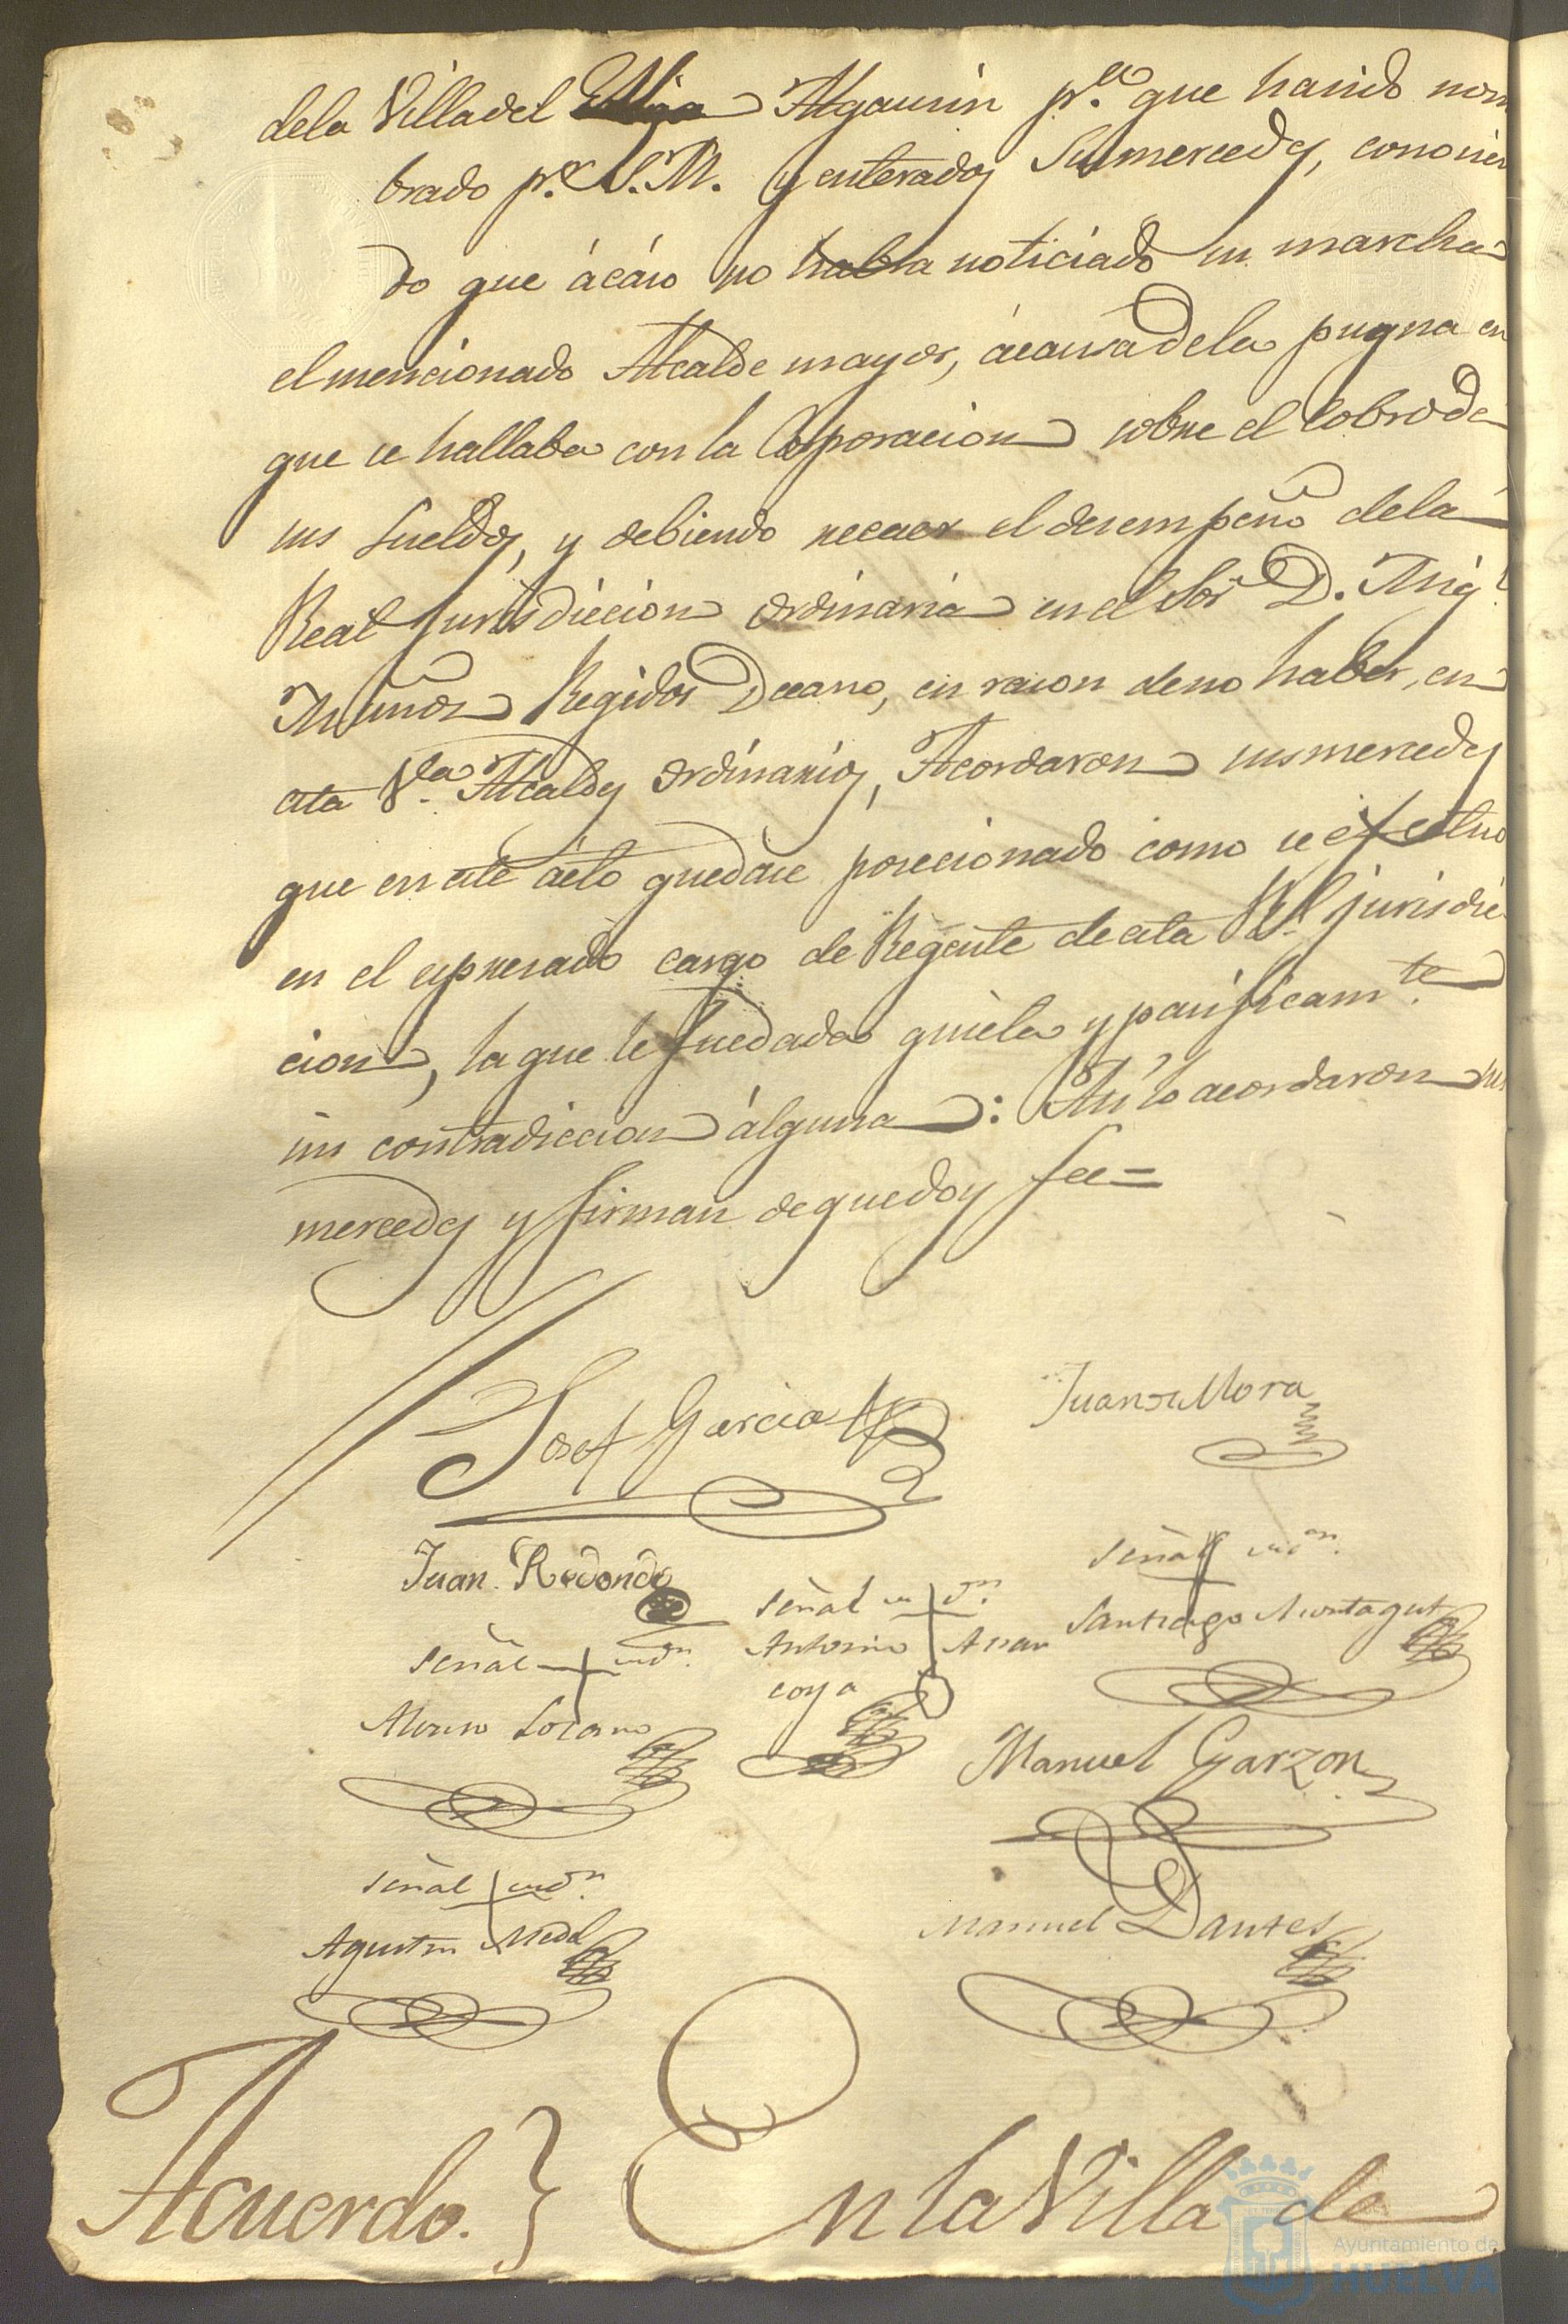 dela Villa del Algaurin pᵃ que ha sido nom
brado pʳ S.M. y enterados Sus mercedes, conocien
do que ácáso no habra noticiado su marcha
el mencionado Alcalde mayor, ácausa dela pugna en
que se hallaba con la Corporacion sobre el Cobro de
sus Sueldos, y debiendo recaer el desempeño dela
Real Jurisdiccion ordinaria en el Sor D. Migˡ
Muñoz Regidor Decano, en razon deno haber, en
esta Vᵃ Alcaldes ordinarios, Acordaron sus mercedes
que en este ácto quedase posecionado como se efectuo
en el espresado cargo de Regente de esta Rˡ jurisdic
cion, la que le fue dada quieta y pacificamᵗᵉ
sin contradiccion álguna: Así lo acordaron sus
mercedes y firman de que doy fee=
Josef Garcia
Juan de Mora
Juan Redondo
Señal + de
Alonso Lozano
Señal + de
Antonio Arran
coya
Señal + de
Santiago Montagut
Manuel Garzon
Señal + de
Agustin Medel
Manuel Dantes
Acuerdo. } En la Villa de
Ayuntamiento de
HUELVA